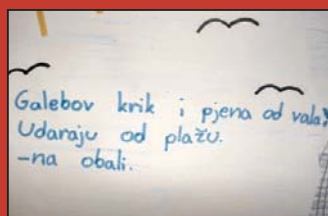 Galebov krik i pjena od vala,
Udaraju od plažu.
-na obali.